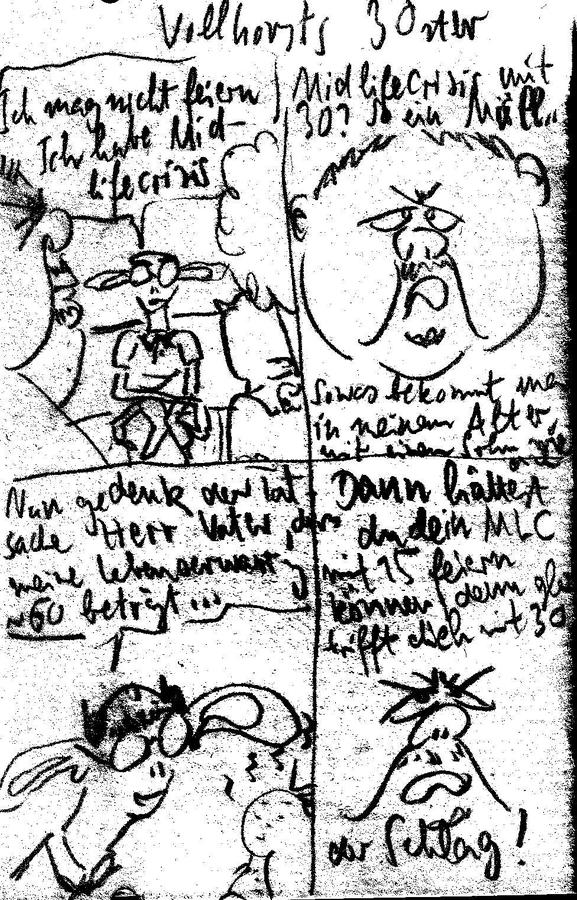 Vollhorsts 30ster
Ich mag nicht feiern
Ich habe Mid-
lifecrisis
Midlifecrisis mit
30? So ein Müll..
Sowas bekommt man
in meinem Alter,
mit einem Sohn wie
Nun gedenk der tat-
sache Herr Vater, dass
meine Lebenserwartg
~60 beträgt...
Dann hättest
du dein MLC
mit 15 feiern
können, denn
trifft dich mit 30
der Schlag!